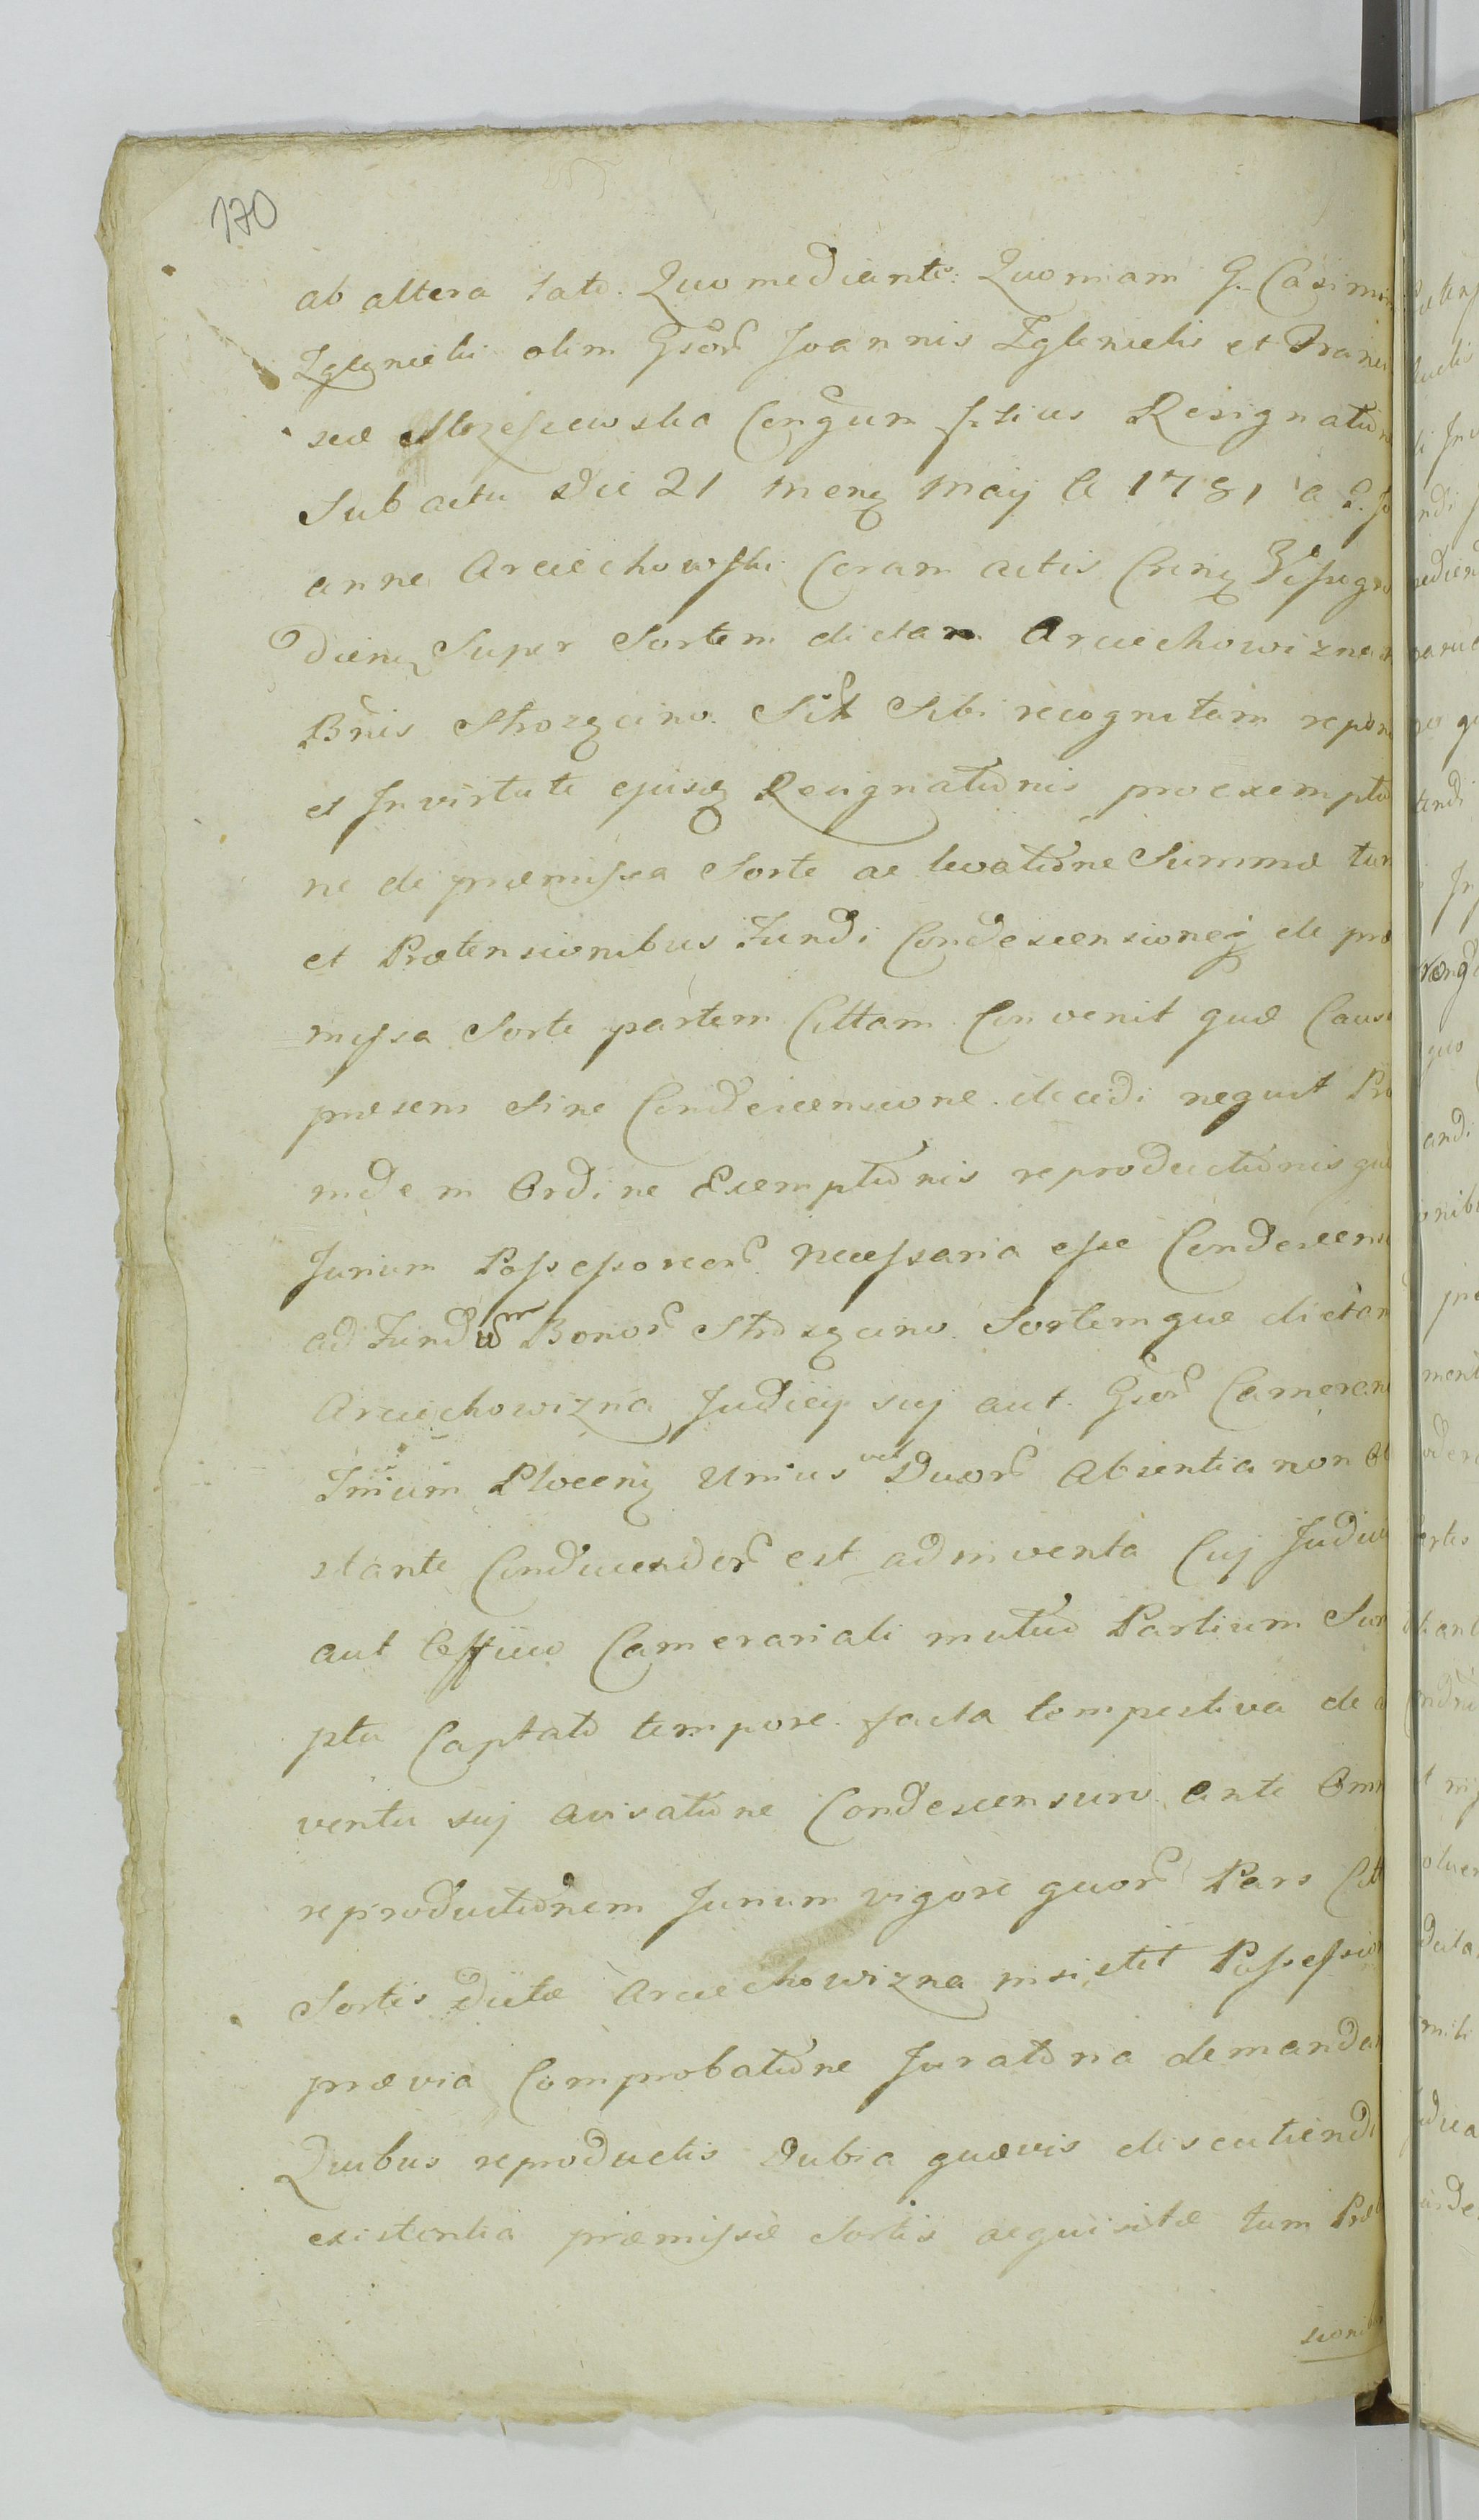 170
ab altera lato. Quo mediante: Quoniam G. Casimi
Zglenicki olim Gsor Joannis Zglenicki et Franci
scæ Mozescewska Congum filius Resignation
Sub actu Die 21 mens May A 1781 a G. Jo
anne Arciechowski Coram actis Crens
diens Super Sortem dictam Arciechowizna
Bnis Strozęcino Sitt Sibi recognitam repon
et In virtute ejusq Resignationis pro exemptio
ne de præmissa Sorte ac levatione Summæ tum
et Prætensionibus Fundi Condescensioneq de præ
missa Sorte partem Cittam Convenit quæ Causa
præsens Sine Condescensione decidi nequit Pro
inde in Ordine Exemptionis reproductionisque
Jurium Possessoreor necessaria esse Condescens
ad Fundum Bonor Strozęcino Sortemque dictam
Arciechowizna Judicij suj aut Gsor Camerar
Trium Plocens Unius vel Duor Absentia non ob
stante Conducendor est adinventa Cuj Judicio
aut Officio Camerariali mutuo Partium Sum
ptu Captato tempore facta tempestiva de ad
ventu suj avisatione Condescensuro ante Omn
reproductionem Jurium vigore quor Pars Citt
Sortis Dictæ Arciechowizna insistit Possession
prævia Comprobatione Juratoria demandat
Quibus reproductis Dubia quævis discutiendi
existentia præmissæ Sortis acquisitæ tum Præt
sionib